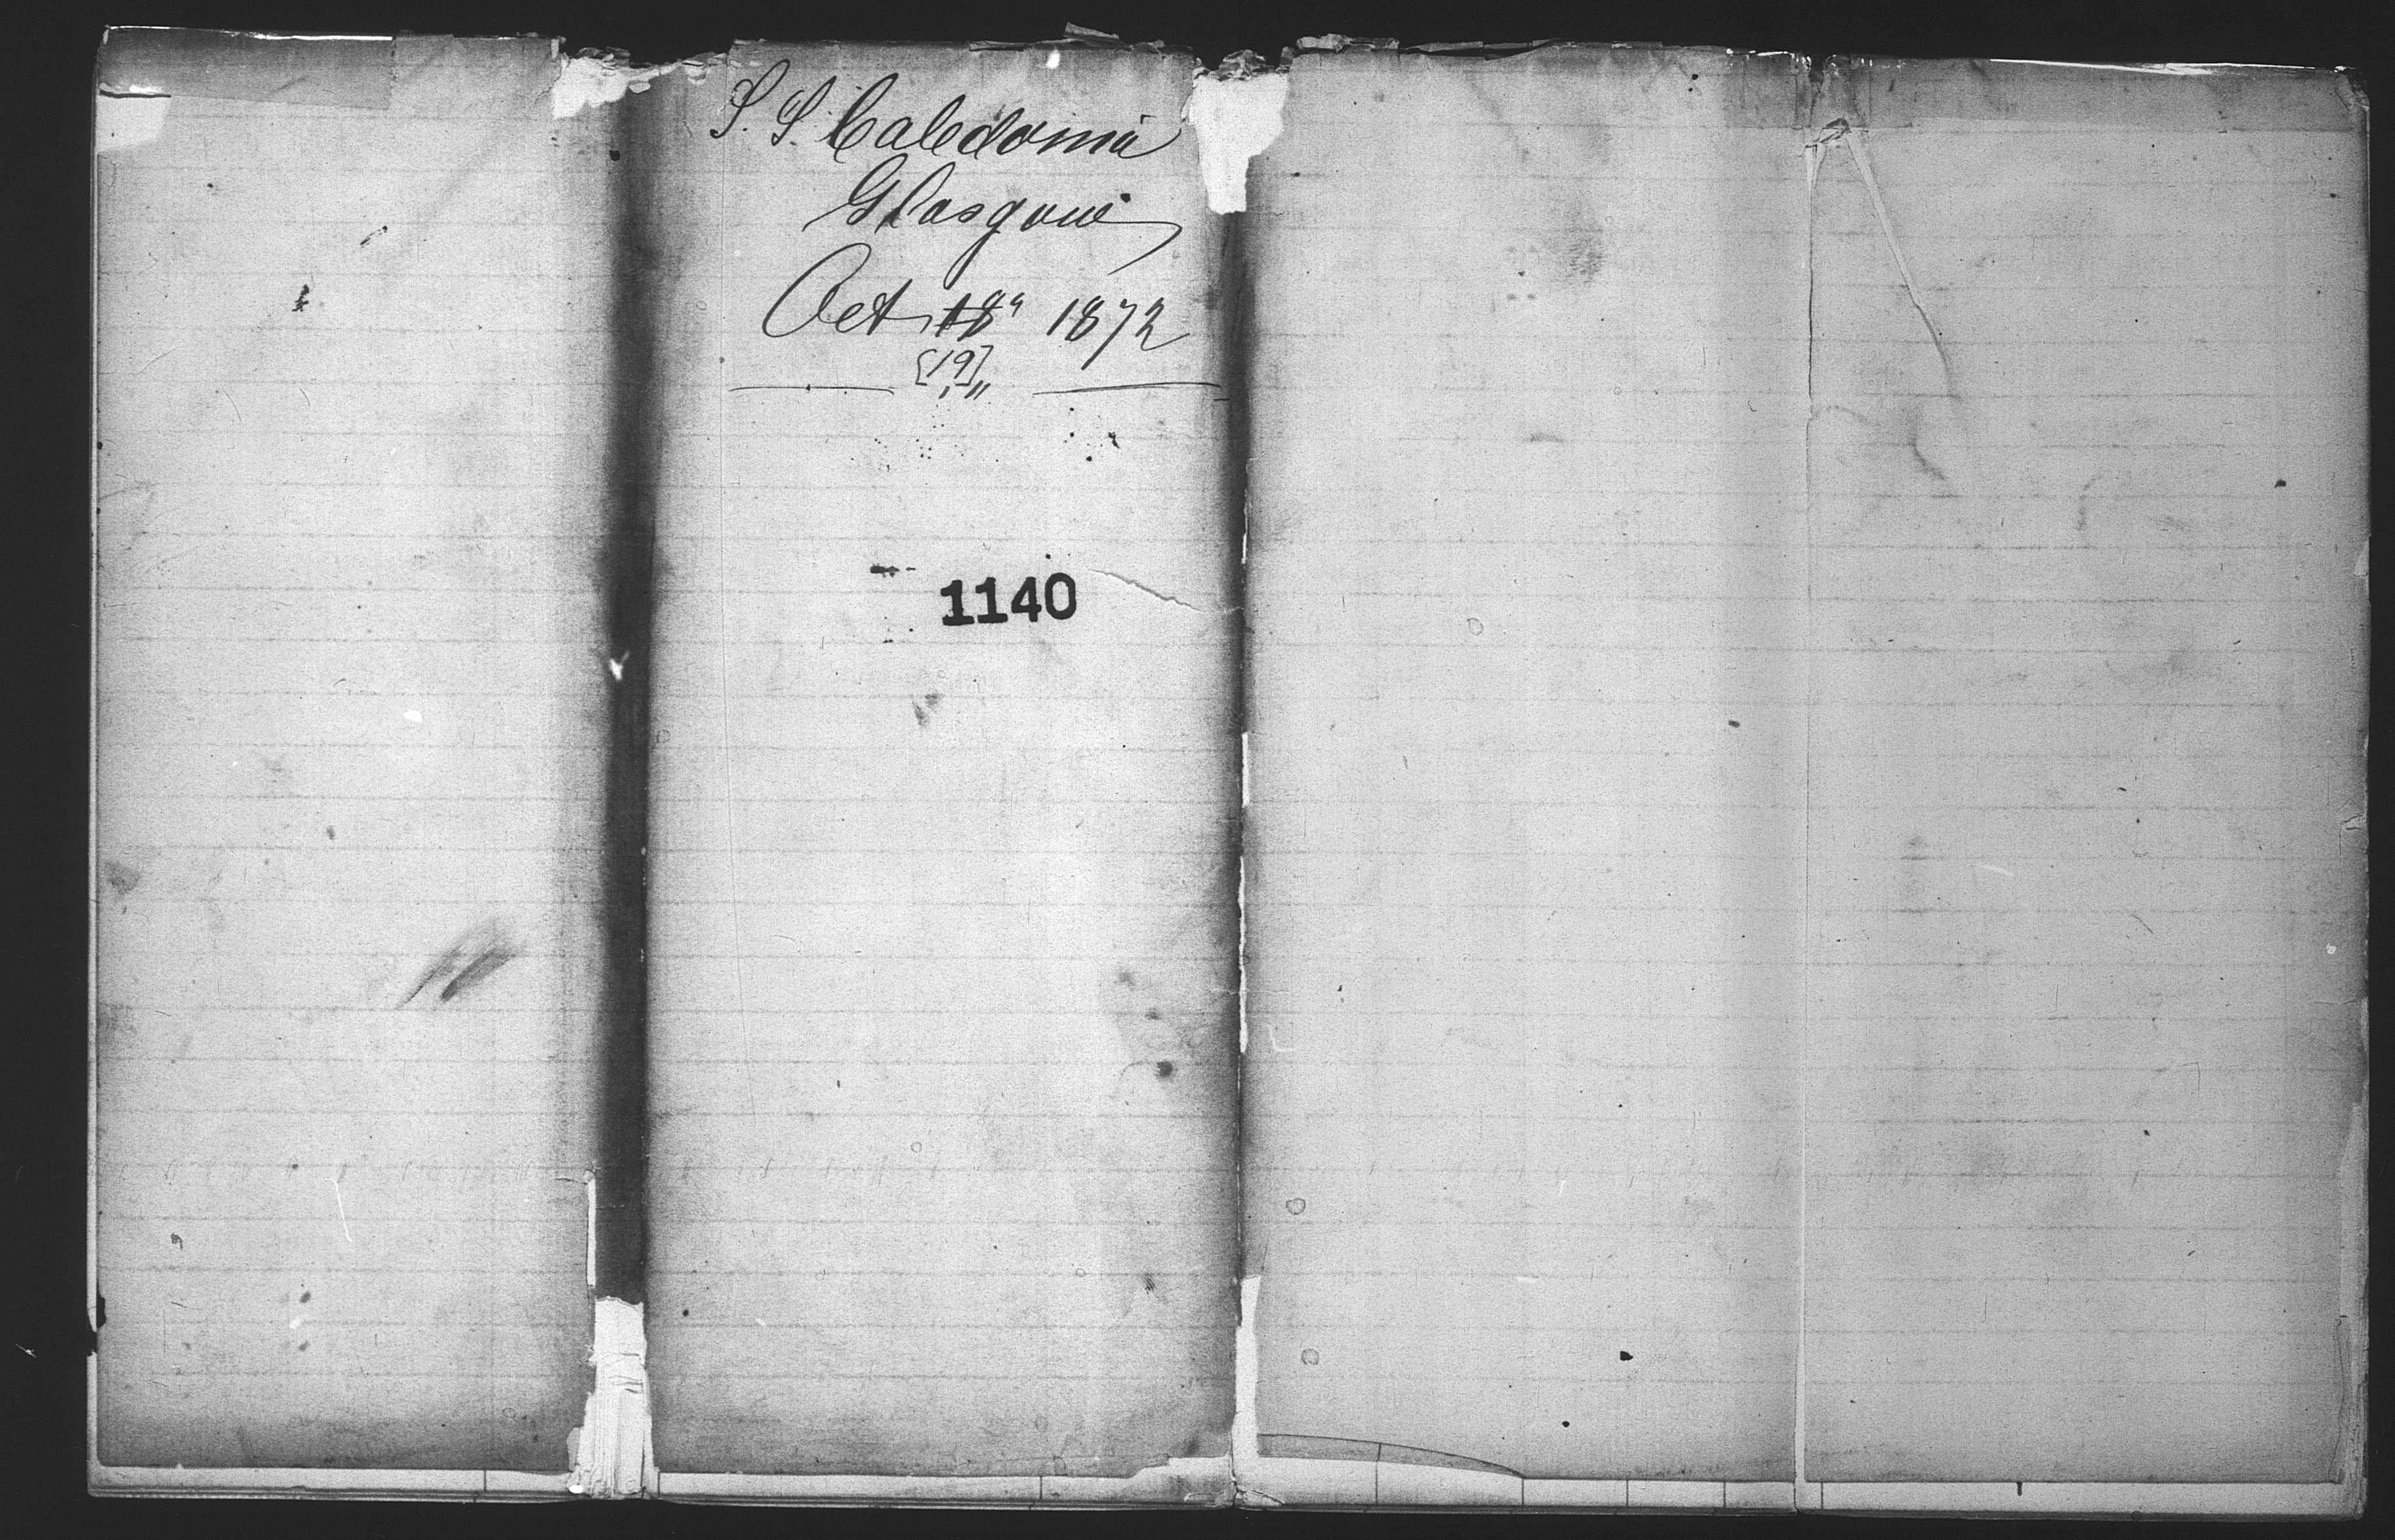 S. S. Caledonia
Glasgow
Oct 18" 1872
[19]"
1140